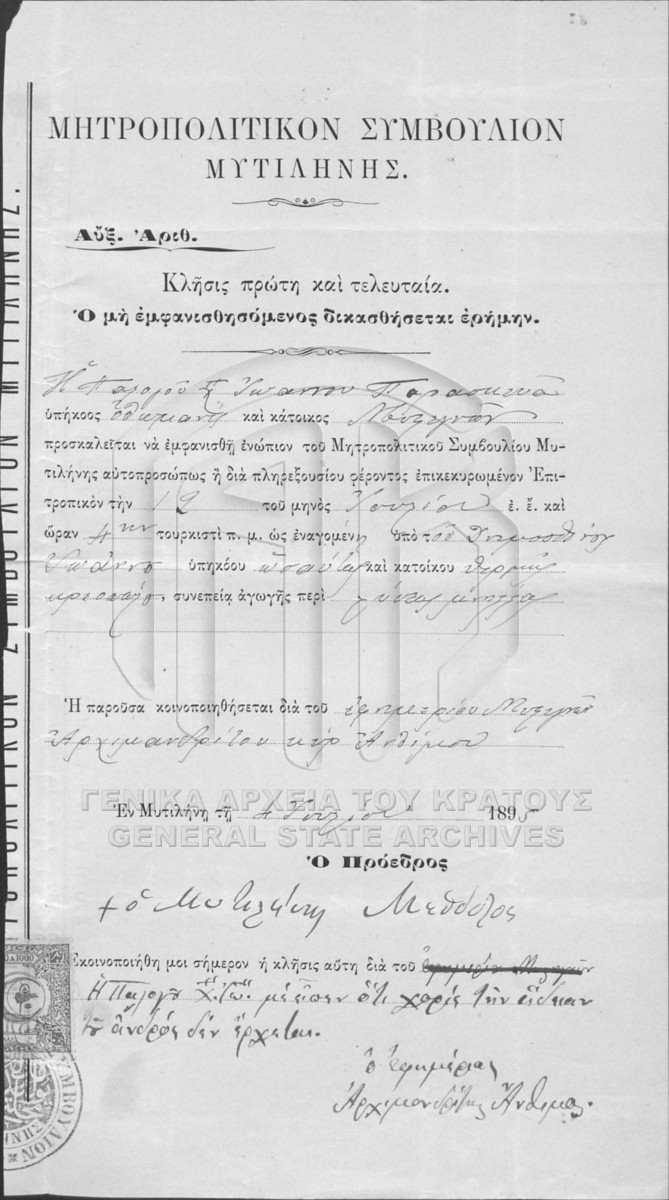 ΜΗΤΡΟΠΟΛΙΤΙΚΟΝ ΣΥΜΒΟΥΛΙΟΝ
ΜΥΤΙΛΗΝΗΣ.
Αὔξ. Ἀριθ.
Κλῆσις πρώτη καὶ τελευταία.
Ὁ μὴ ἐμφανισθησόμενος δικασθήσεται ἐρήμην.
Ἡ Παγολοῦ Ἰωάννου Παρασκευᾶ
ὑπήκοος ὀθωμανὴ καὶ κάτοικος
προσκαλεῖται νὰ ἐμφανισθῇ ἐνώπιον τοῦ Μητροπολιτικοῦ Συμβουλίου Μυ-
τιλήνης αὐτοπροσώπως ἢ διὰ πληρεξουσίου φέροντος ἐπικεκυρωμένον Ἐπι-
τροπικὸν τὴν 12 τοῦ μηνὸς Ἰουλίου ἐ. ἔ. καὶ
ὥραν 4ην τουρκιστὶ π. μ. ὡς ἐναγομένη ὑπὸ τοῦ Δημοσθένους
Ἰωάννου ὑπηκόου ὡσαύτως καὶ κατοίκου Θερμῆς
συνεπείᾳ ἀγωγῆς περὶ
Ἡ παροῦσα κοινοποιηθήσεται διὰ τοῦ ἐφημερίου
Ἀρχιμανδρίτου κὺρ Ἀνθίμου
Ἐν Μυτιλήνῃ τῇ 4 Ἰουλίου 1895
ΓΕΝΙΚΑ ΑΡΧΕΙΑ ΤΟΥ ΚΡΑΤΟΥΣ
GENERAL STATE ARCHIVES
Ὁ Πρόεδρος
† ὁ Μυτιλήνης Μεθόδιος
Ἐκοινοποιήθη μοι σήμερον ἡ κλῆσις αὕτη διὰ τοῦ
Ἡ με εἶπεν ὅτι χωρὶς τὴν ἄδειαν
τοῦ ἀνδρός δέν ἔρχεται.
ὁ ἐφημέριος
Ἀρχιμανδρίτης Ἄνθιμος.